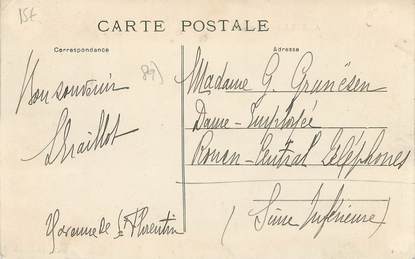 15f
CARTE POSTALE
Correspondance
Adresse
89)
Bon souvenir
Madame G. Grunësen
Dame-Employée
Rouen-Central Téléphones
(Seine Inférieure)
Varenne de St Florentin